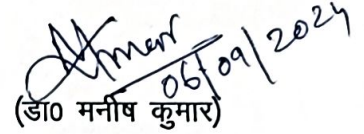 06/09/2024
(डा0 मनीष कुमार)